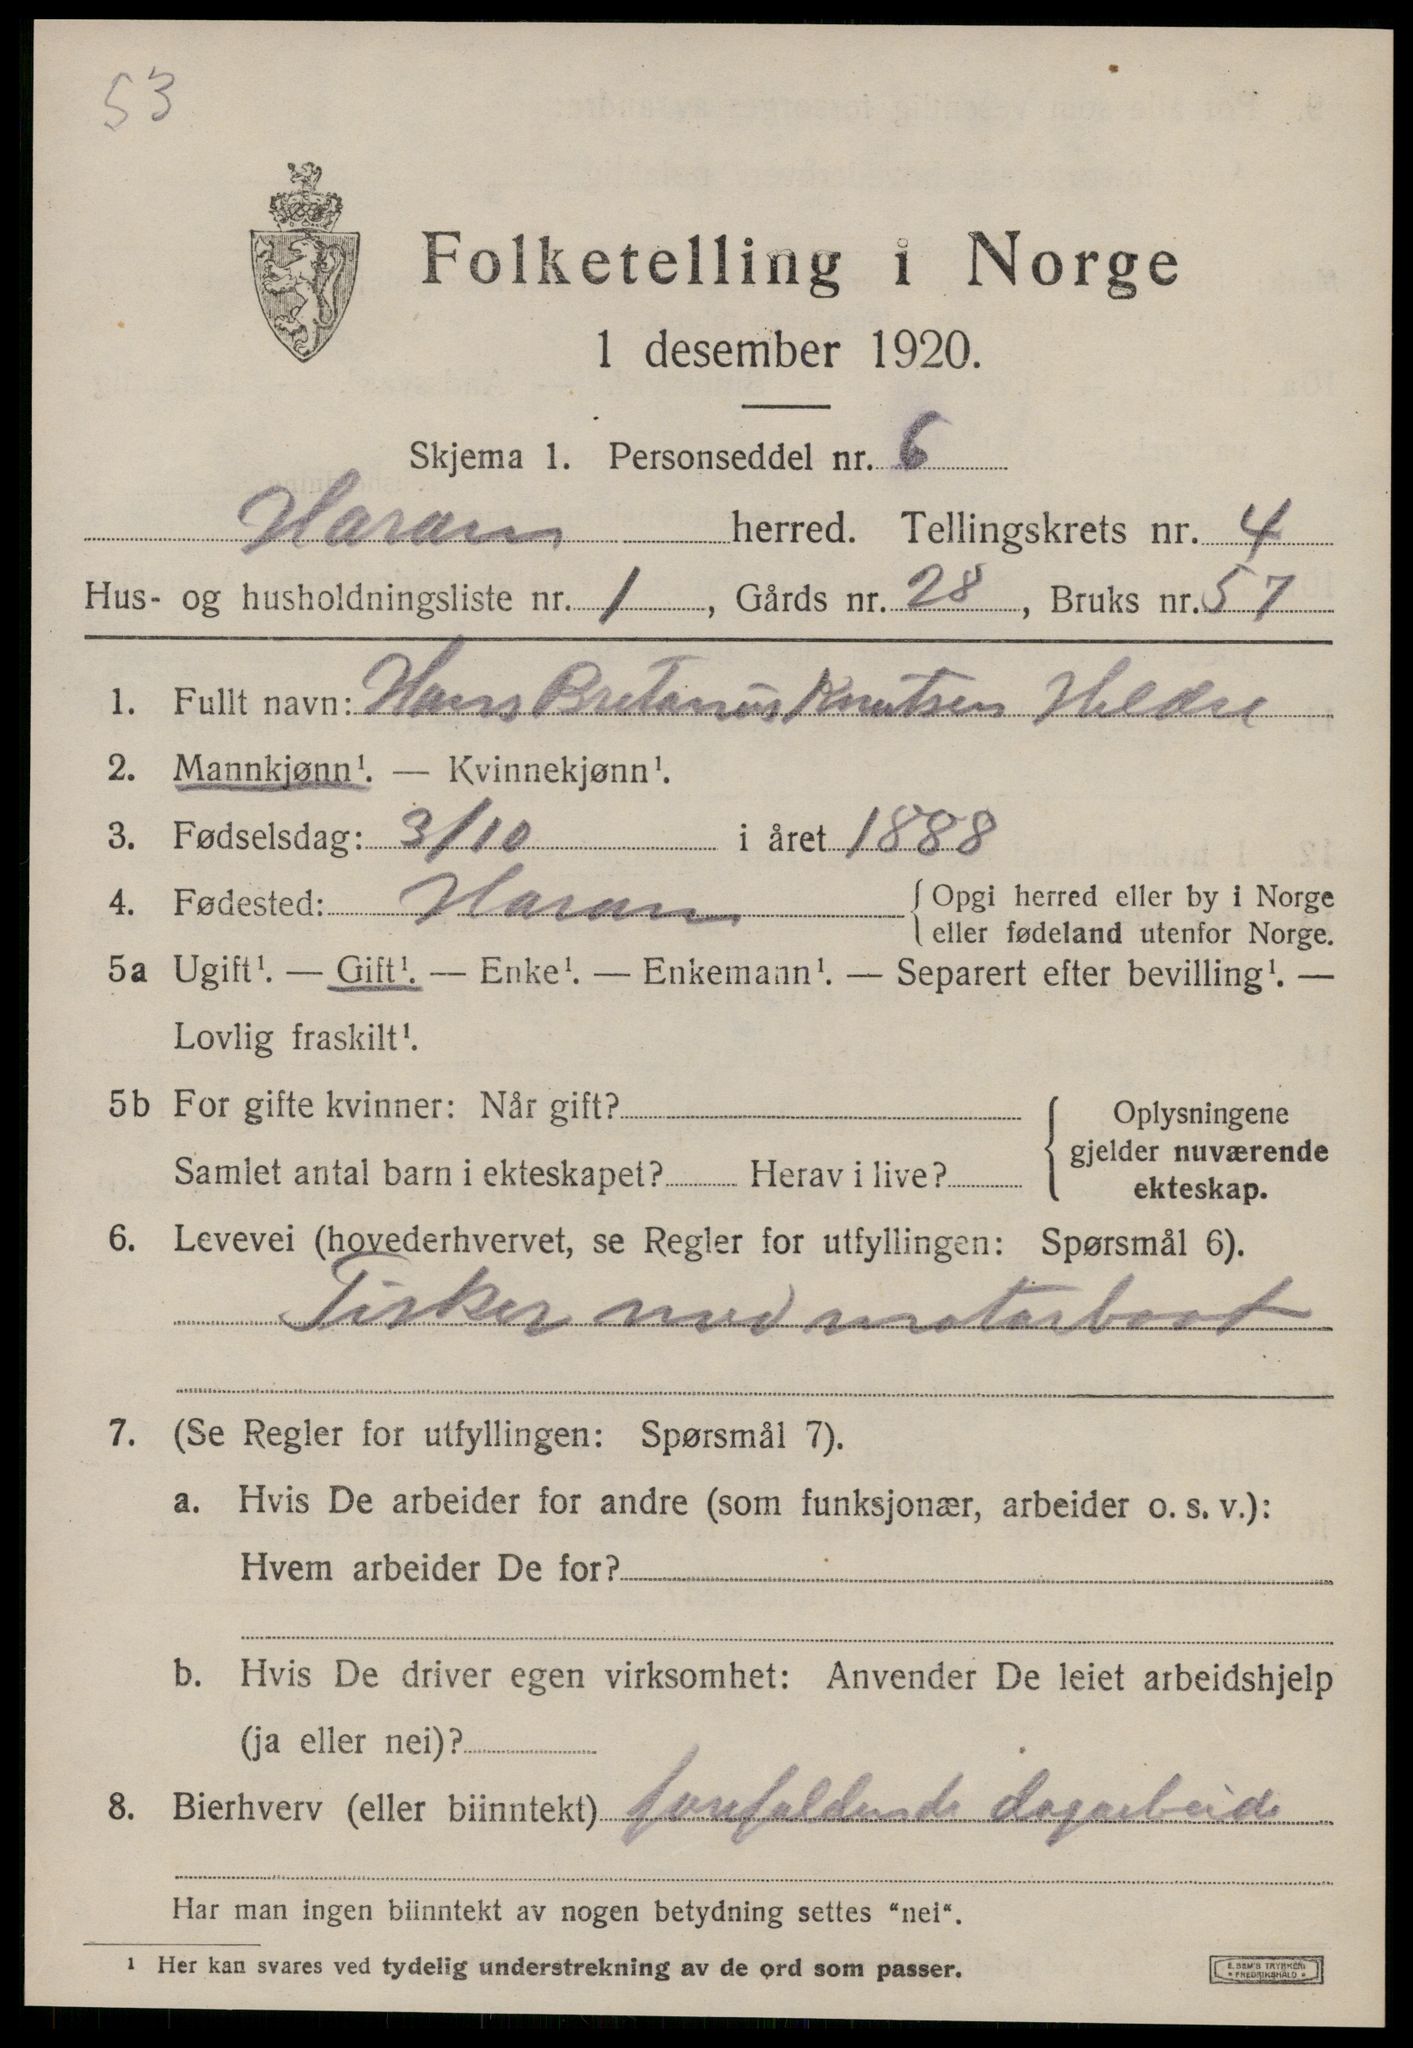 53
Folketelling i Norge
1 desember 1920.
Skjema 1. Personseddel nr. 6
Haram herred. Tellingskrets nr. 4
Hus- og husholdningsliste nr. 1, Gårds nr. 28, Bruks nr. 57
1. Fullt navn: Hans Bretanus Knutsen Hildre
2. Mannkjønn¹. — Kvinnekjønn¹.
3. Fødselsdag: 3/10 i året 1888
4. Fødested: Haram { Opgi herred eller by i Norge
eller fødeland utenfor Norge.
5a Ugift¹. — Gift¹. — Enke¹. — Enkemann¹. — Separert efter bevilling¹. —
Lovlig fraskilt¹.
5b For gifte kvinner: Når gift?
Samlet antal barn i ekteskapet? Herav i live?
{ Oplysningene
gjelder nuværende
ekteskap.
6. Levevei (hovederhvervet, se Regler for utfyllingen: Spørsmål 6).
Fisker med motorbaat
7. (Se Regler for utfyllingen: Spørsmål 7).
a. Hvis De arbeider for andre (som funksjonær, arbeider o. s. v.):
Hvem arbeider De for?
b. Hvis De driver egen virksomhet: Anvender De leiet arbeidshjelp
(ja eller nei)?
8. Bierhverv (eller biinntekt) forefaldende dagarbeide
Har man ingen biinntekt av nogen betydning settes "nei".
¹ Her kan svares ved tydelig understrekning av de ord som passer.
E. SEM'S TRYKKERI
FREDRIKSHALD